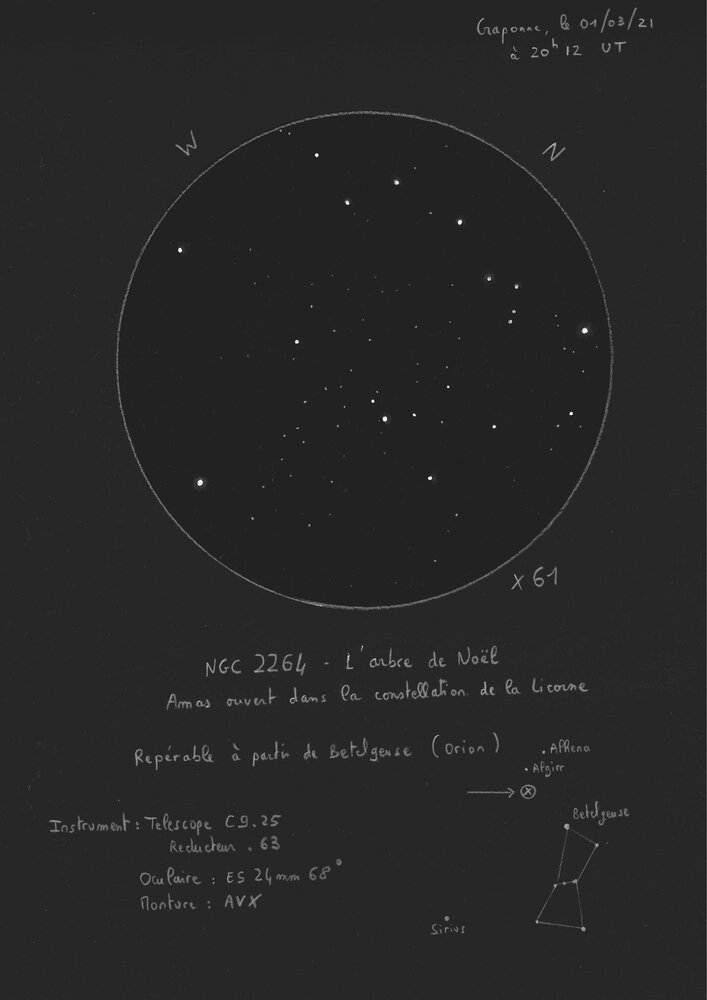 Craponne, le 01/03/21
à 20h12 UT
W
N
x 61
NGC 2264 - L'arbre de Noël
Amas ouvert dans la constellation de la Licorne
Repérable à partir de Betelgeuse (Orion)
. Alhena
. Alzirr
Betelgeuse
Instrument : Telescope C9.25
Reducteur .63
Oculaire : ES 24mm 68°
Monture : AVX
Sirius